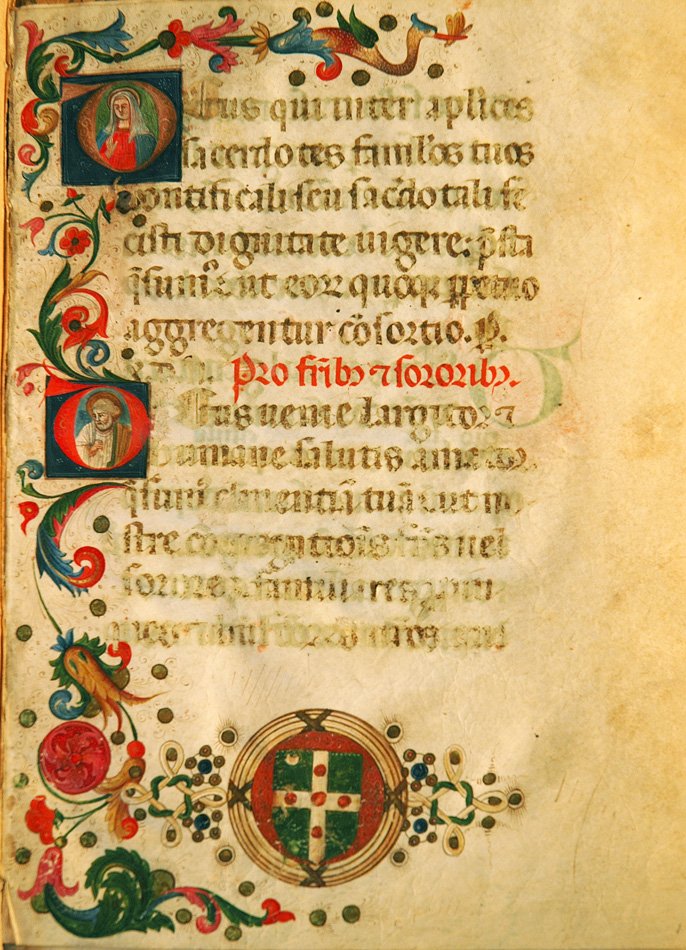 Deus qui inter ap̄licos
sacerdotes famlōs tuos
pontificali seu sac̄dotali fe
cisti dignitate uigere: p̄sta
q̄sum᷒ ut eoꝝ quoqꝫ ꝑpetuo
aggregentur cōsortio. P.
Pro fr̄ibꝫ ⁊ sororibꝫ.
Deus uenie largitor ⁊
humane salutis amator
q̄sum᷒ clementiā tuā ut no
stre congregationis fr̄es uel
sorores familiares